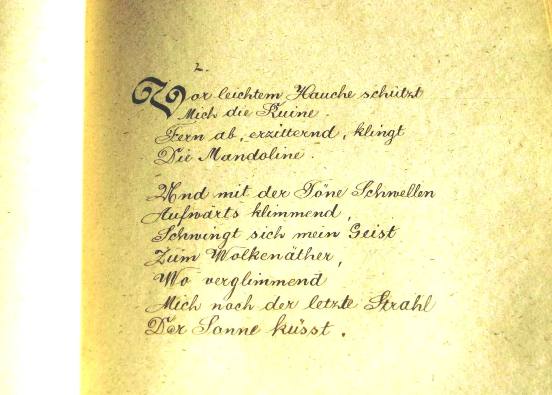 2.
Vor leichtem Hauche schützt
Mich die Ruine.
Fern ab, erzitternd, klingt
Die Mandoline.
Und mit der Töne Schwellen
Aufwärts klimmend,
Schwingt sich mein Geist
Zum Wolkenäther,
Wo verglimmend
Mich noch der letzte Strahl
Der Sonne küsst.